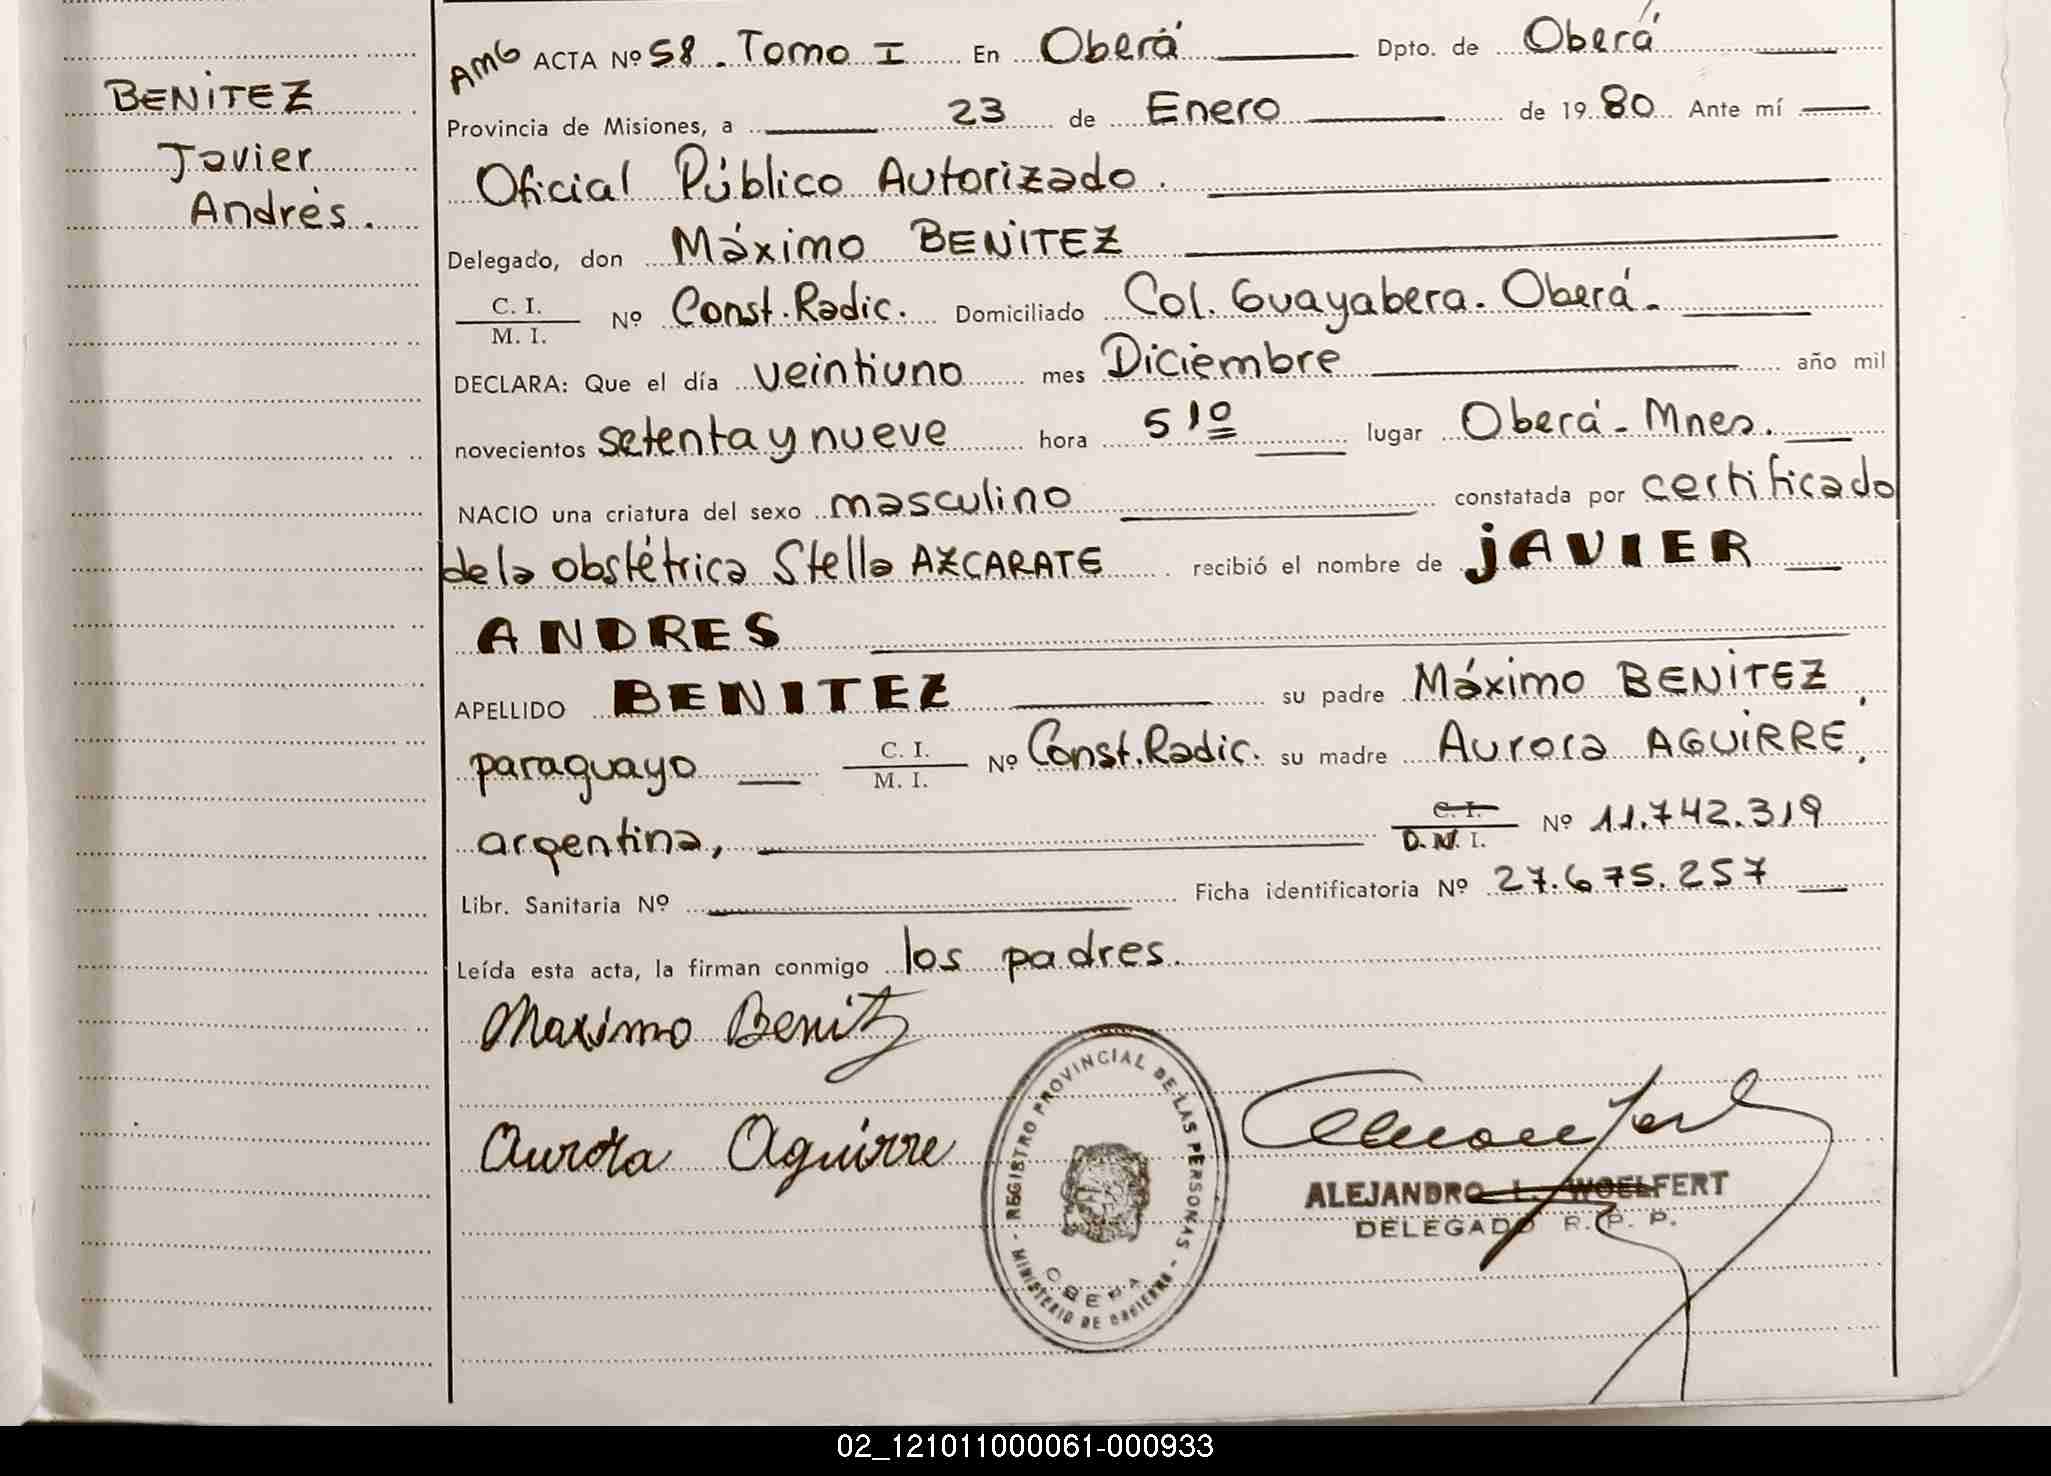 BENITEZ
Javier
Andrés.
AMG ACTA Nº 58. Tomo I En Oberá Dpto. de Oberá
Provincia de Misiones, a 23 de Enero de 1980 Ante mí
Oficial Público Autorizado.
Delegado, don Máximo BENITEZ
C. I.
M. I. Nº Const. Radic. Domiciliado Col. Guayabera. Oberá.
DECLARA: Que el día veintiuno mes Diciembre año mil
novecientos setenta y nueve hora 5 10 lugar Oberá - Mnes.
NACIO una criatura del sexo masculino constatada por certificado
de la obstétrica Stella AZCARATE recibió el nombre de JAVIER
ANDRES
APELLIDO BENITEZ su padre Máximo BENITEZ,
paraguayo C. I. / M. I. Nº Const. Radic. su madre Aurora AGUIRRE,
argentina, C. I. / D. N. I. Nº 11.742.319
Libr. Sanitaria Nº Ficha identificatoria Nº 27.675.257
Leída esta acta, la firman conmigo los padres.
Maximo Benitz
Aurora Aguirre
- REGISTRO PROVINCIAL DE LAS PERSONAS -
MINISTERIO DE GOBIERNO
OBERA
ALEJANDRO L. WOELFERT
DELEGADO R. P. P.
02_121011000061-000933